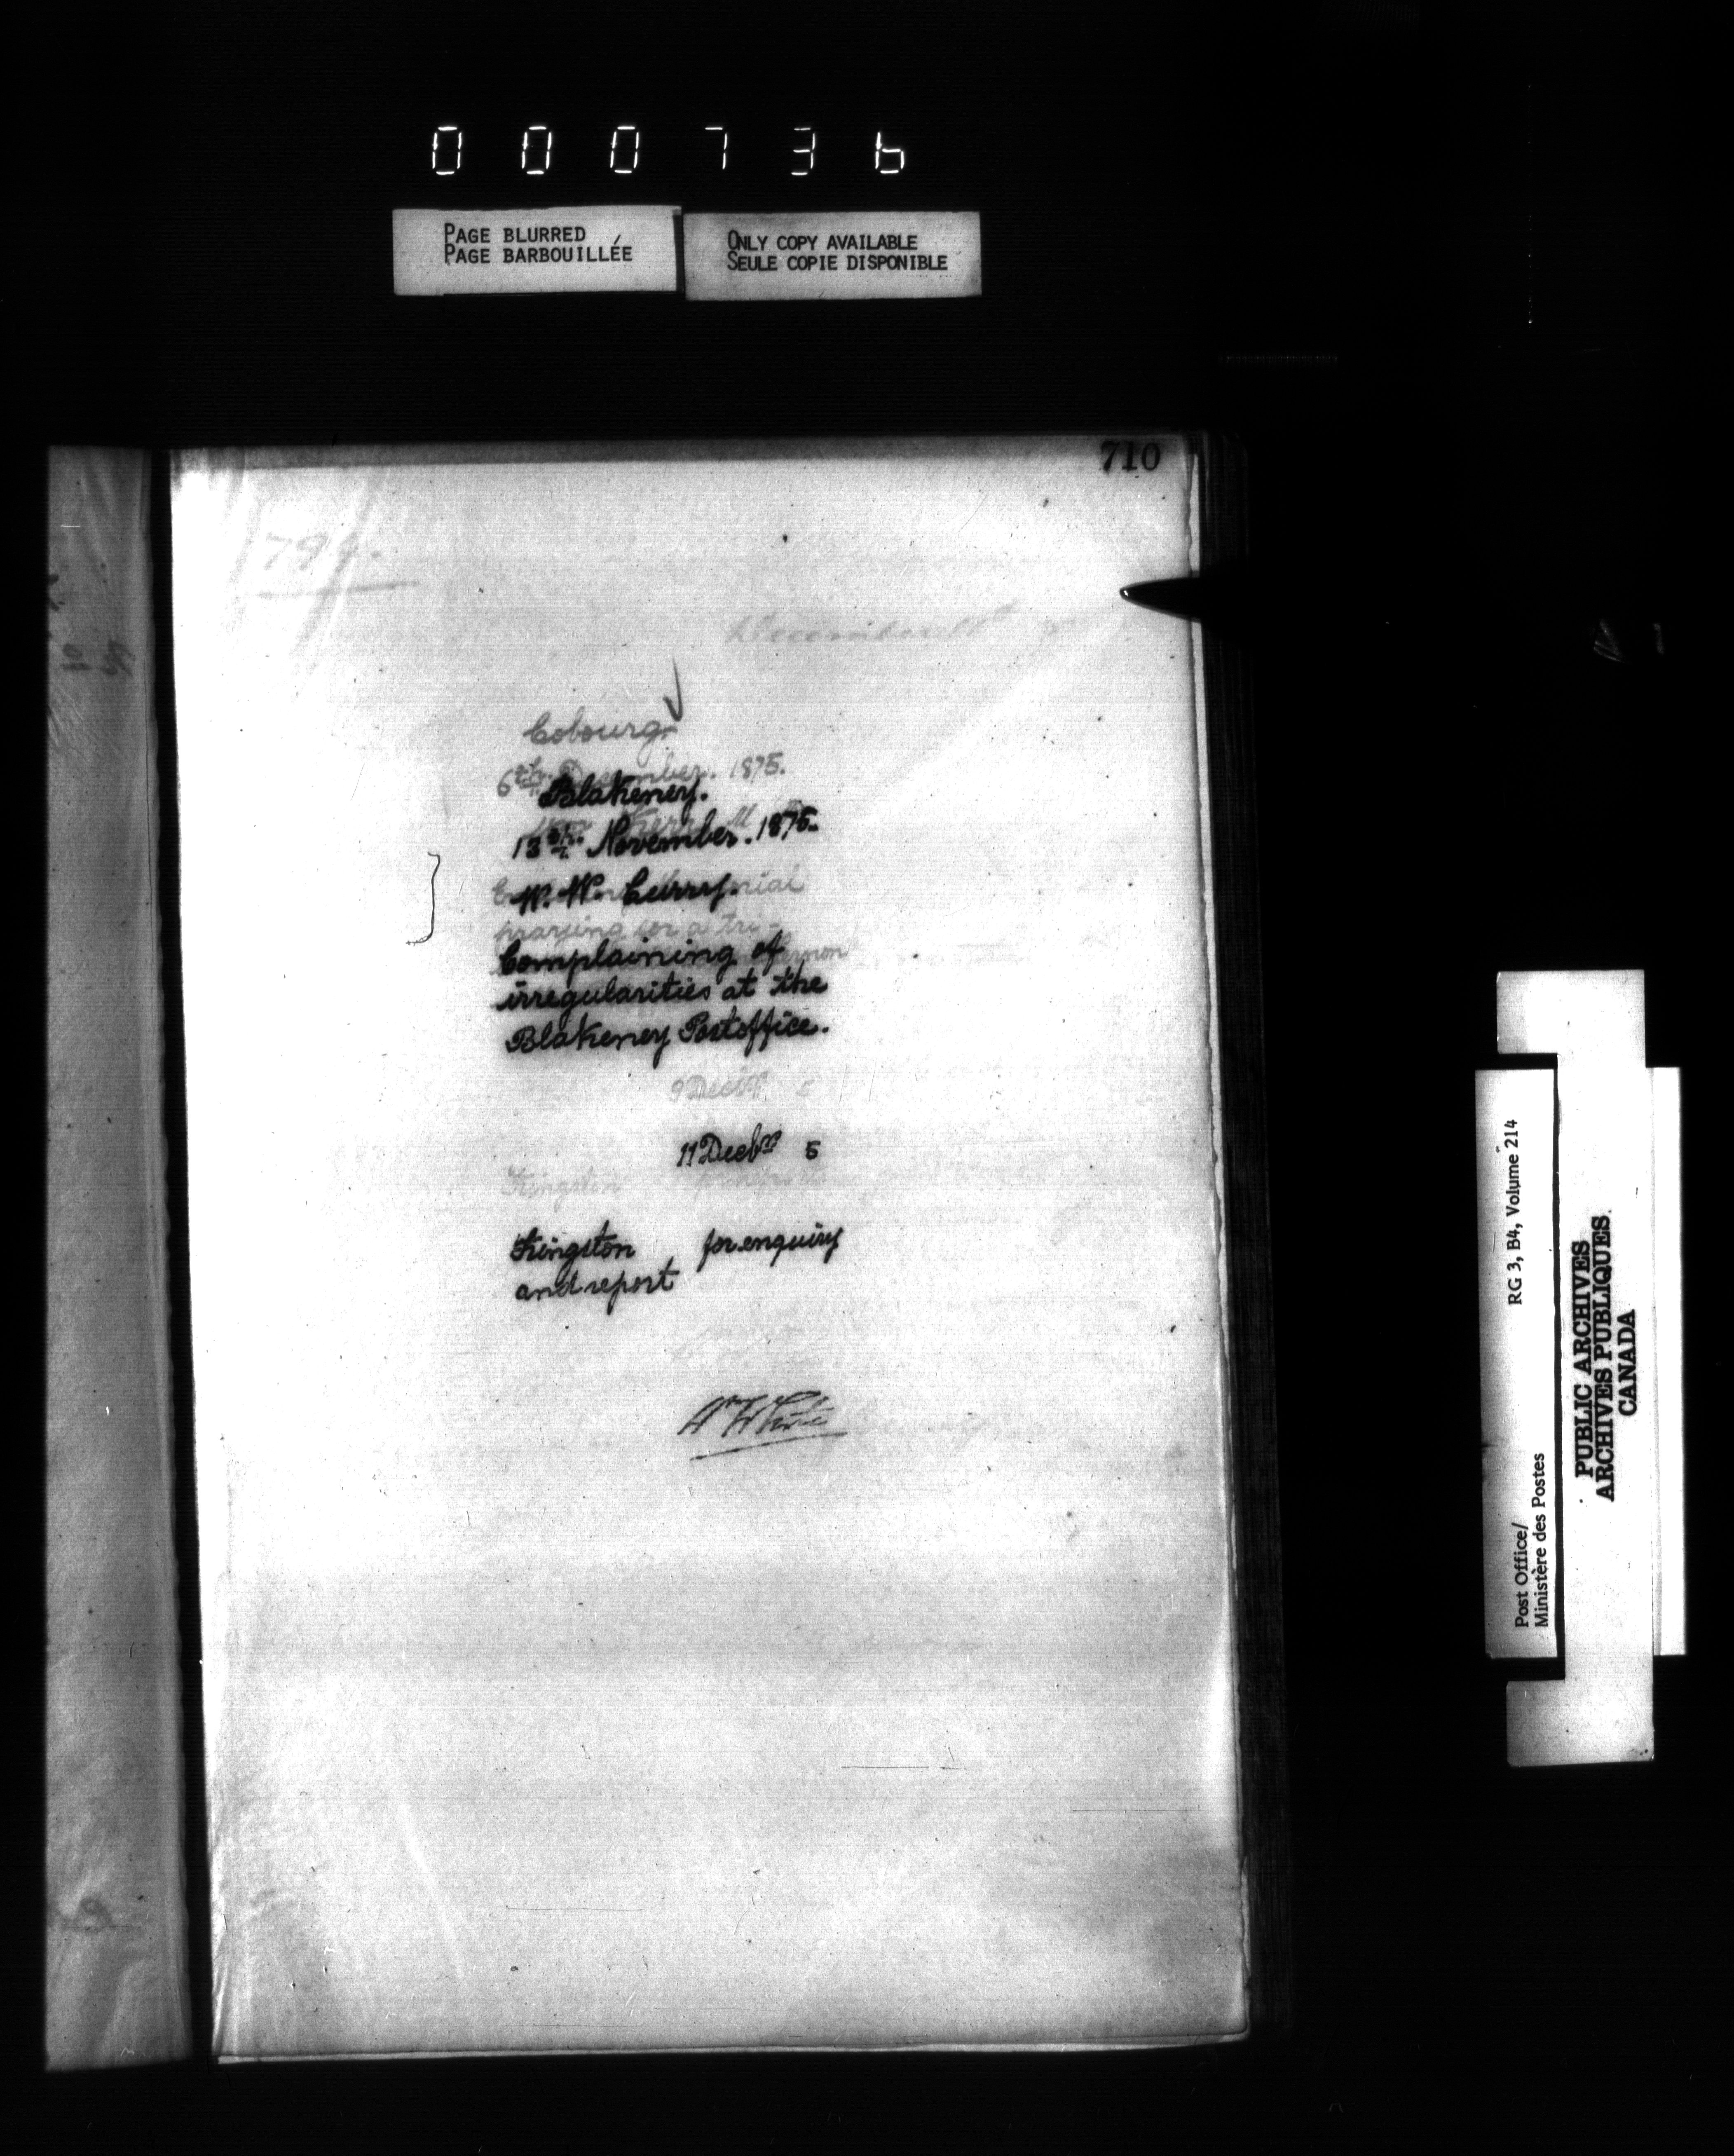 000736
PAGE BLURRED
PAGE BARBOUILLÉE
ONLY COPY AVAILABLE
SEULE COPIE DISPONIBLE
710
Cobourg.
6th December. 1875.
Blakeney.
13th November. 1875.
W. W. Curry.
praying for a tri-
Complaining of
irregularities at the
Blakeney Postoffice.
9 Decbr 5
11 Decbr 5
Kingston
Kingston for enquiry
and report
Post Office/
Ministère des Postes
RG 3, B4, Volume 214
PUBLIC ARCHIVES
ARCHIVES PUBLIQUES
CANADA